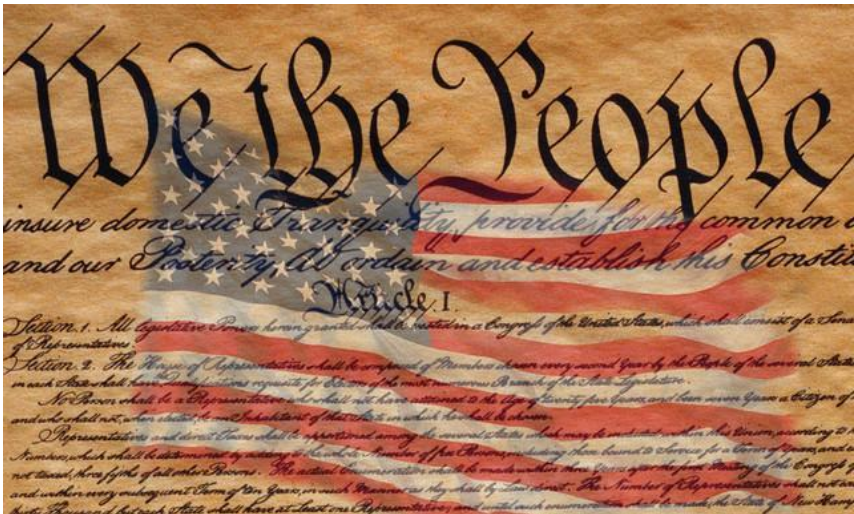 We the People
insure domestic Tranquility, provide for the common
and our Posterity, do ordain and establish this Constit
Article. I.
Section. 1. All legislative Powers herein granted shall be vested in a Congress of the United States, which shall consist of a Sena
of Representatives.
Section. 2. The House of Representatives shall be composed of Members chosen every second Year by the People of the several States
in each State shall have Qualifications requisite for Electors of the most numerous Branch of the State Legislature.
No Person shall be a Representative who shall not have attained to the Age of twenty five Years, and been seven Years a Citizen of
and who shall not, when elected, be an Inhabitant of that State in which he shall be chosen.
Representatives and direct Taxes shall be apportioned among the several States which may be included within this Union, according to
Numbers, which shall be determined by adding to the whole Number of free Persons, including those bound to Service for a Term of Years, and
not taxed, three fifths of all other Persons. The actual Enumeration shall be made within three Years after the first Meeting of the Congress
and within every subsequent Term of ten Years, in such Manner as they shall by Law direct. The Number of Representatives shall not
thirty Thousand, but each State shall have at Least one Representative; and until such enumeration shall be made, the State of New Hamp